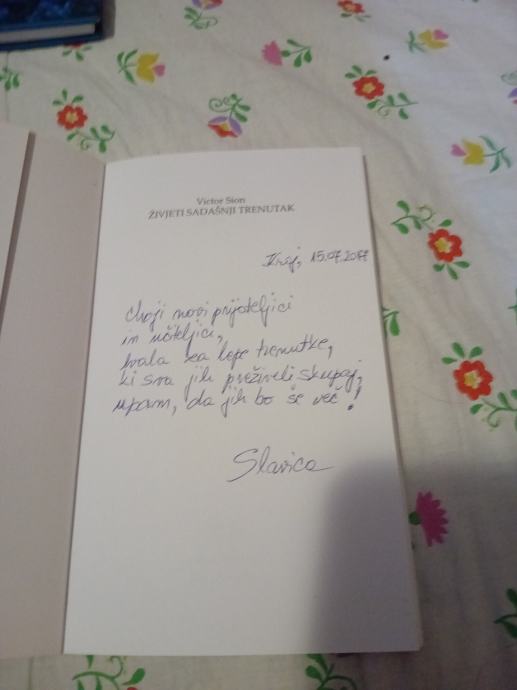 Victor Sion
ŽIVJETI SADAŠNJI TRENUTAK
15.07.2017
novi prijateljici
in učiteljici,
hvala za lepe trenutke,
ki sva jih preživeli skupaj,
upam, da jih bo še več!
Slavica